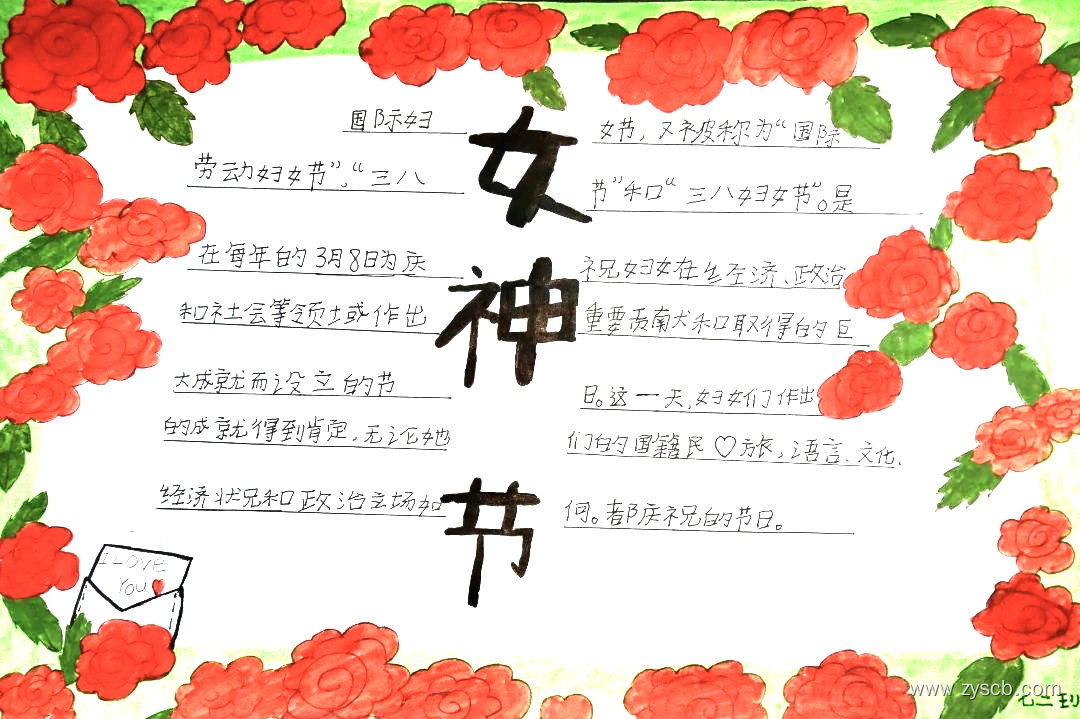 女神节
国际妇女节，又被称为“国际
劳动妇女节”，“三八节”和“三八妇女节”。是
在每年的3月8日为庆祝妇女在经济、政治
和社会等领域作出重要贡献和取得的巨
大成就而设立的节日。这一天，妇女们作出
的成就得到肯定，无论她们的国籍民♡族，语言、文化、
经济状况和政治立场如何。都庆祝的节日。
I Love
You
www.zyscb.com
七二班